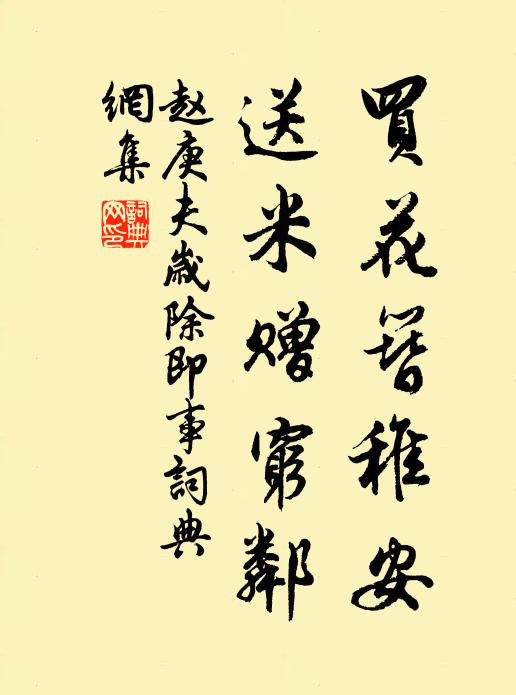 買花簪稚女
送米贈窮鄰
赵庚夫歲除即事詞典
網集
詞典网印